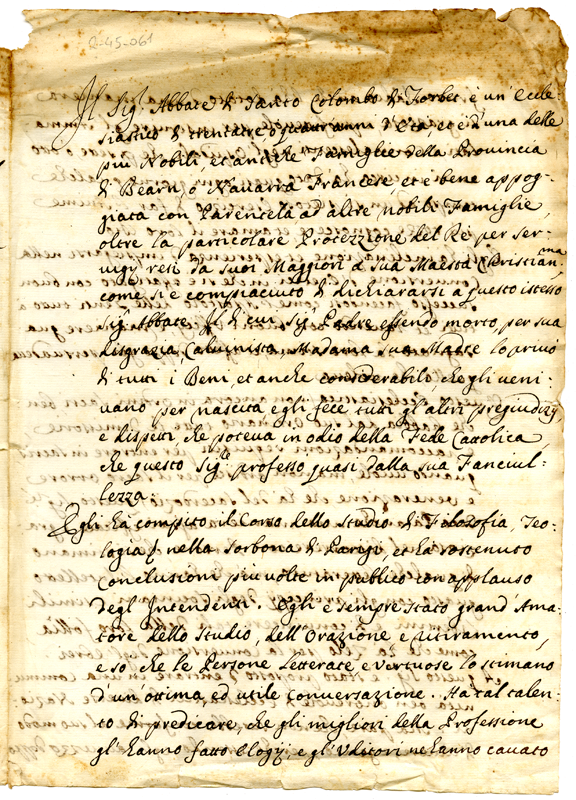 2-45-061
Il Sig.r Abbate di Santo Colombo di Forbet, è un' eccle
siastico di trentatre ò quattr'anni d'età, et è d'una delle
più Nobili, et antiche Famiglie della Provincia
di Bearn, ò Navarra Francese, et è bene appog-
giata con Parentela ad altre nobili Famiglie,
oltre la particolare Protezzione del Rè per ser-
vigij resi da suoi Maggiori à Sua Maestà Christian.ma
come si è compiaciuto di dichiararsi a questo istesso
Sig.r Abbate. Il di cui Sig.r Padre essendo morto, per sua
disgrazia, Calvinista, Madama sua Madre lo privò
di tutti i Beni, et anche considerabilo che gli veni-
vano per nascita, e gli fece tutti gl'altri pregiudizij
e dispetti, che poteva in odio della Fede Cattolica,
che questo Sig.re professò quasi dalla sua Fanciul-
lezza.
Egli hà compito il Corso dello studio di Filozofia, Teo-
logia nella Sorbona di Parigi, et hà sostenuto
conclusioni più volte in publico con applauso
degl'Intendenti. Egli è sempre stato grand'Ama-
tore dello studio, dell'Orazione e ritiramento,
e sò che le Persone letterate, e vertuose lo stimano
d'un'ottima, ed utile conversazione. Ha tal talen-
to di predicare, che gli migliori della Professione
gl'hanno fatto elogij, e gl'Uditori ne hanno cavato